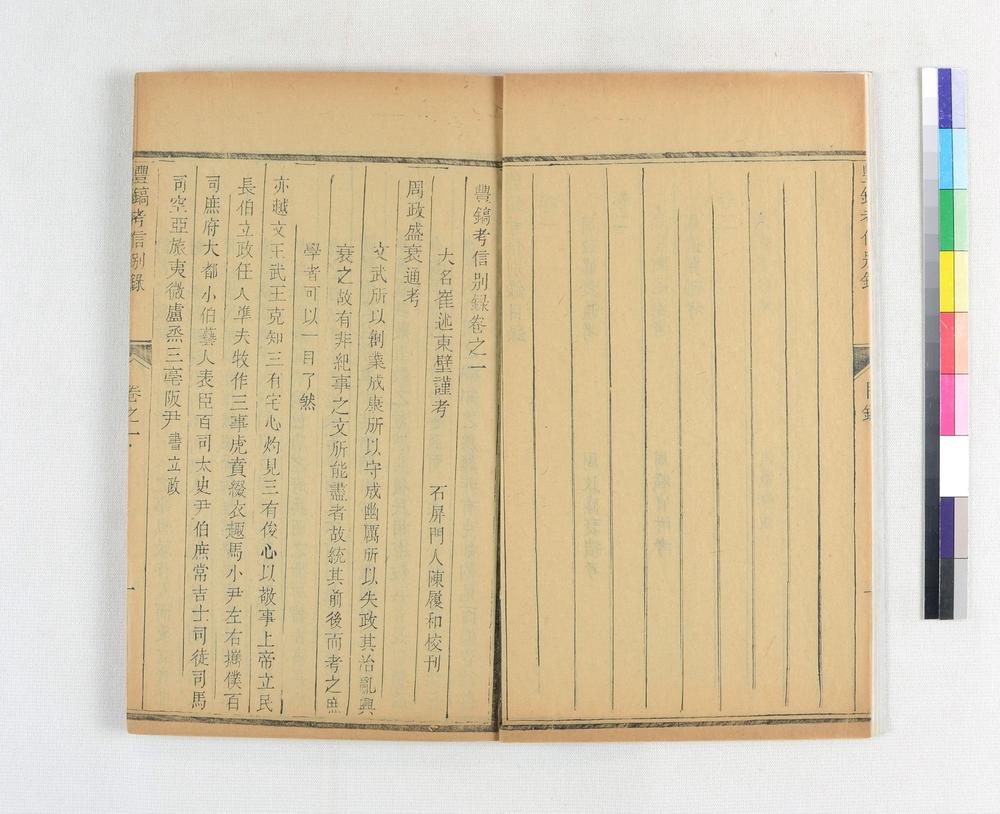 豐鎬考信別錄
目錄
豐鎬考信別錄卷之一
大名崔述東壁謹考 石屏門人陳履和校刊
周政盛衰通考
文武所以創業成康所以守成幽厲所以失政其治亂興
衰之故有非紀事之文所能盡者故統其前後而考之庶
學者可以一目了然
亦越文王武王克知三有宅心灼見三有俊心以敬事上帝立民
長伯立政任人準夫牧作三事虎賁綴衣趣馬小尹左右攜僕百
司庶府大都小伯藝人表臣百司太史尹伯庶常吉士司徒司馬
司空亞旅夷微盧烝三亳阪尹 書立政
豐鎬考信別錄
卷之一
一